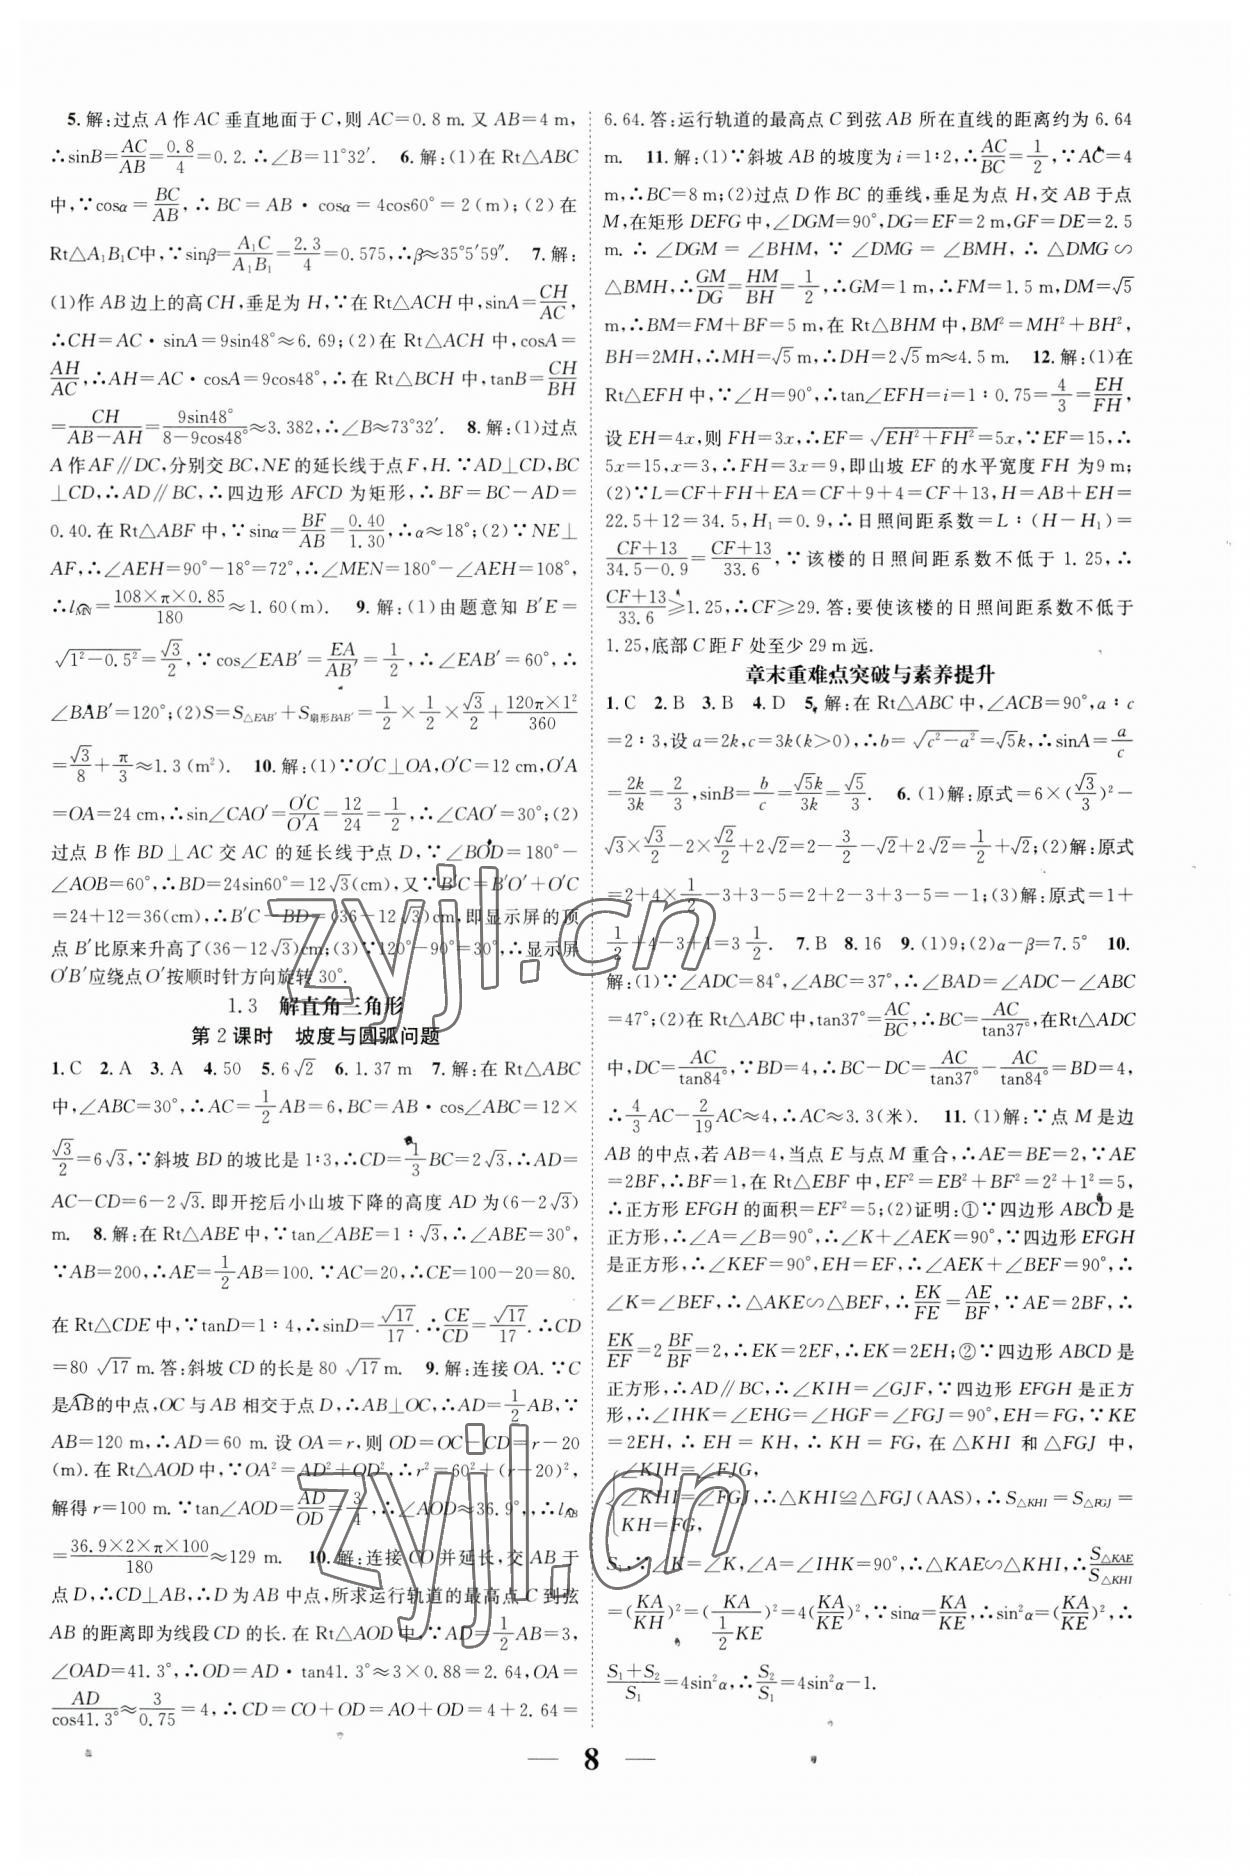 5. 解:过点 A 作 AC 垂直地面于 C,则 AC=0.8 m. 又 AB=4 m,
∴sinB=AC/AB=0.8/4=0.2. ∴∠B=11°32′. 6. 解:(1)在 Rt△ABC
中,∵cosα=BC/AB,∴BC=AB·cosα=4cos60°=2(m);(2)在
Rt△A₁B₁C中,∵sinβ=A₁C/A₁B₁=2.3/4=0.575,∴β≈35°5′59″. 7. 解:
(1)作 AB 边上的高 CH,垂足为 H,∵在 Rt△ACH 中,sinA=CH/AC,
∴CH=AC·sinA=9sin48°≈6.69;(2)在 Rt△ACH 中,cosA=
AH/AC,∴AH=AC·cosA=9cos48°,∴在 Rt△BCH 中,tanB=CH/BH
=CH/(AB−AH)=9sin48°/(8−9cos48°)≈3.382,∴∠B≈73°32′. 8. 解:(1)过点
A 作 AF∥DC,分别交 BC,NE 的延长线于点 F,H. ∵AD⊥CD,BC
⊥CD,∴AD∥BC,∴四边形 AFCD 为矩形,∴BF=BC−AD=
0.40. 在 Rt△ABF 中,∵sinα=BF/AB=0.40/1.30,∴α≈18°;(2)∵NE⊥
AF,∴∠AEH=90°−18°=72°,∴∠MEN=180°−∠AEH=108°,
=(108×π×0.85)/180≈1.60(m). 9. 解:(1)由题意知 B′E=
√(1²−0.5²)=√3/2,∵cos∠EAB′=EA/AB′=1/2,∴∠EAB′=60°,∴
∠BAB′=120°;(2)S=S△EAB′+S扇形BAB′=1/2×1/2×√3/2+(120π×1²)/360
=√3/8+π/3≈1.3(m²). 10. 解:(1)∵O′C⊥OA,O′C=12 cm,O′A
=OA=24 cm,∴sin∠CAO′=O′C/O′A=12/24=1/2,∴∠CAO′=30°;(2)
过点 B 作 BD⊥AC 交 AC 的延长线于点 D,∵∠BOD=180°−
∠AOB=60°,∴BD=24sin60°=12√3(cm),又∵B′C=B′O′+O′C
=24+12=36(cm),∴B′C−BD=(36−12√3)cm,即显示屏的顶
点 B′比原来升高了(36−12√3)cm;(3)∵120°−90°=30°,∴显示屏
O′B′应绕点 O′按顺时针方向旋转 30°.
1.3 解直角三角形
第 2 课时 坡度与圆弧问题
1. C 2. A 3. A 4. 50 5. 6√2 6. 1.37 m 7. 解:在 Rt△ABC
中,∠ABC=30°,∴AC=1/2AB=6,BC=AB·cos∠ABC=12×
√3/2=6√3,∵斜坡 BD 的坡比是 1∶3,∴CD=1/3BC=2√3,∴AD=
AC−CD=6−2√3. 即开挖后小山坡下降的高度 AD 为(6−2√3)
m. 8. 解:在 Rt△ABE 中,∵tan∠ABE=1∶√3,∴∠ABE=30°.
∵AB=200,∴AE=1/2AB=100. ∵AC=20,∴CE=100−20=80.
在 Rt△CDE 中,∵tanD=1∶4,∴sinD=√17/17. ∴CE/CD=√17/17. ∴CD
=80√17 m. 答:斜坡 CD 的长是 80√17 m. 9. 解:连接 OA. ∵C
是⌒AB的中点,OC 与 AB 相交于点 D,∴AB⊥OC,∴AD=1/2AB,∵
AB=120 m,∴AD=60 m. 设 OA=r,则 OD=OC−CD=r−20
(m). 在 Rt△AOD 中,∵OA²=AD²+OD²,∴r²=60²+(r−20)²,
解得 r=100 m. ∵tan∠AOD=AD/OD=3/4,∴∠AOD≈36.9°,∴l⌒AB
=(36.9×2×π×100)/180≈129 m. 10. 解:连接 CO 并延长,交 AB 于
点 D,∴CD⊥AB,∴D 为 AB 中点,所求运行轨道的最高点 C 到弦
AB 的距离即为线段 CD 的长. 在 Rt△AOD 中,∵AD=1/2AB=3,
∠OAD=41.3°,∴OD=AD·tan41.3°≈3×0.88=2.64,OA=
AD/cos41.3°≈3/0.75=4,∴CD=CO+OD=AO+OD=4+2.64=
6.64. 答:运行轨道的最高点 C 到弦 AB 所在直线的距离约为 6.64
m. 11. 解:(1)∵斜坡 AB 的坡度为 i=1∶2,∴AC/BC=1/2,∵AC=4
m,∴BC=8 m;(2)过点 D 作 BC 的垂线,垂足为点 H,交 AB 于点
M,在矩形 DEFG 中,∠DGM=90°,DG=EF=2 m,GF=DE=2.5
m. ∴∠DGM=∠BHM,∵∠DMG=∠BMH,∴△DMG∽
△BMH,∴GM/DG=HM/BH=1/2,∴GM=1 m,∴FM=1.5 m,DM=√5
m,∴BM=FM+BF=5 m,在 Rt△BHM 中,BM²=MH²+BH²,
BH=2MH,∴MH=√5 m,∴DH=2√5 m≈4.5 m. 12. 解:(1)在
Rt△EFH 中,∵∠H=90°,∴tan∠EFH=i=1∶0.75=4/3=EH/FH,
设 EH=4x,则 FH=3x,∴EF=√(EH²+FH²)=5x,∵EF=15,∴
5x=15,x=3,∴FH=3x=9,即山坡 EF 的水平宽度 FH 为 9 m;
(2)∵L=CF+FH+EA=CF+9+4=CF+13,H=AB+EH=
22.5+12=34.5,H₁=0.9,∴日照间距系数=L∶(H−H₁)=
(CF+13)/(34.5−0.9)=(CF+13)/33.6,∵该楼的日照间距系数不低于 1.25,∴
(CF+13)/33.6≥1.25,∴CF≥29. 答:要使该楼的日照间距系数不低于
1.25,底部 C 距 F 处至少 29 m 远.
章末重难点突破与素养提升
1. C 2. B 3. B 4. D 5. 解:在 Rt△ABC 中,∠ACB=90°,a∶c
=2∶3,设 a=2k,c=3k(k>0),∴b=√(c²−a²)=√5k,∴sinA=a/c
=2k/3k=2/3,sinB=b/c=√5k/3k=√5/3. 6. (1)解:原式=6×(√3/3)²−
√3×√3/2−2×√2/2+2√2=2−3/2−√2+2√2=1/2+√2;(2)解:原式
=2+4×1/2−3+3−5=2+2−3+3−5=−1;(3)解:原式=1+
1/2+4−3+1=3 1/2. 7. B 8. 16 9. (1)9;(2)α−β=7.5° 10.
解:(1)∵∠ADC=84°,∠ABC=37°,∴∠BAD=∠ADC−∠ABC
=47°;(2)在 Rt△ABC 中,tan37°=AC/BC,∴BC=AC/tan37°,在Rt△ADC
中,DC=AC/tan84°,∵BD=4,∴BC−DC=AC/tan37°−AC/tan84°=BD=4,
∴4/3AC−2/19AC≈4,∴AC≈3.3(米). 11. (1)解:∵点 M 是边
AB 的中点,若 AB=4,当点 E 与点 M 重合,∴AE=BE=2,∵AE
=2BF,∴BF=1,在 Rt△EBF 中,EF²=EB²+BF²=2²+1²=5,
∴正方形 EFGH 的面积=EF²=5;(2)证明:①∵四边形 ABCD 是
正方形,∴∠A=∠B=90°,∴∠K+∠AEK=90°,∵四边形 EFGH
是正方形,∴∠KEF=90°,EH=EF,∴∠AEK+∠BEF=90°,∴
∠K=∠BEF,∴△AKE∽△BEF,∴EK/FE=AE/BF,∵AE=2BF,∴
EK/EF=2BF/BF=2,∴EK=2EF,∴EK=2EH;②∵四边形 ABCD 是
正方形,∴AD∥BC,∴∠KIH=∠GJF,∵四边形 EFGH 是正方
形,∴∠IHK=∠EHG=∠HGF=∠FGJ=90°,EH=FG,∵KE
=2EH,∴EH=KH,∴KH=FG,在△KHI 和△FGJ 中,
{∠KIH=∠FJG,
∠KHI=∠FGJ,∴△KHI≌△FGJ(AAS),∴S△KHI=S△FGJ=
KH=FG,
S₁,∵∠K=∠K,∠A=∠IHK=90°,∴△KAE∽△KHI,∴S△KAE/S△KHI
=(KA/KH)²=(KA/(1/2KE))²=4(KA/KE)²,∵sinα=KA/KE,∴sin²α=(KA/KE)²,∴
(S₁+S₂)/S₁=4sin²α,∴S₂/S₁=4sin²α−1.
zyjl.cn
zyjl.cn
8